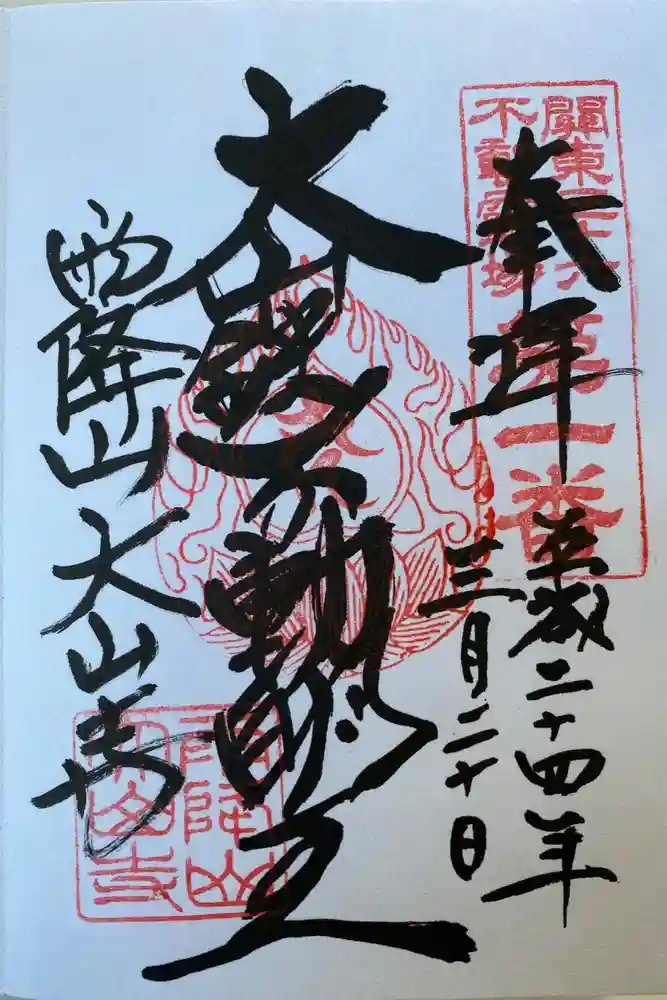 奉拝
平成二十四年
三月二十日
大山鐵不動明王
雨降山大山寺
關東三十六
不動霊場
第一番
雨降山
大山寺